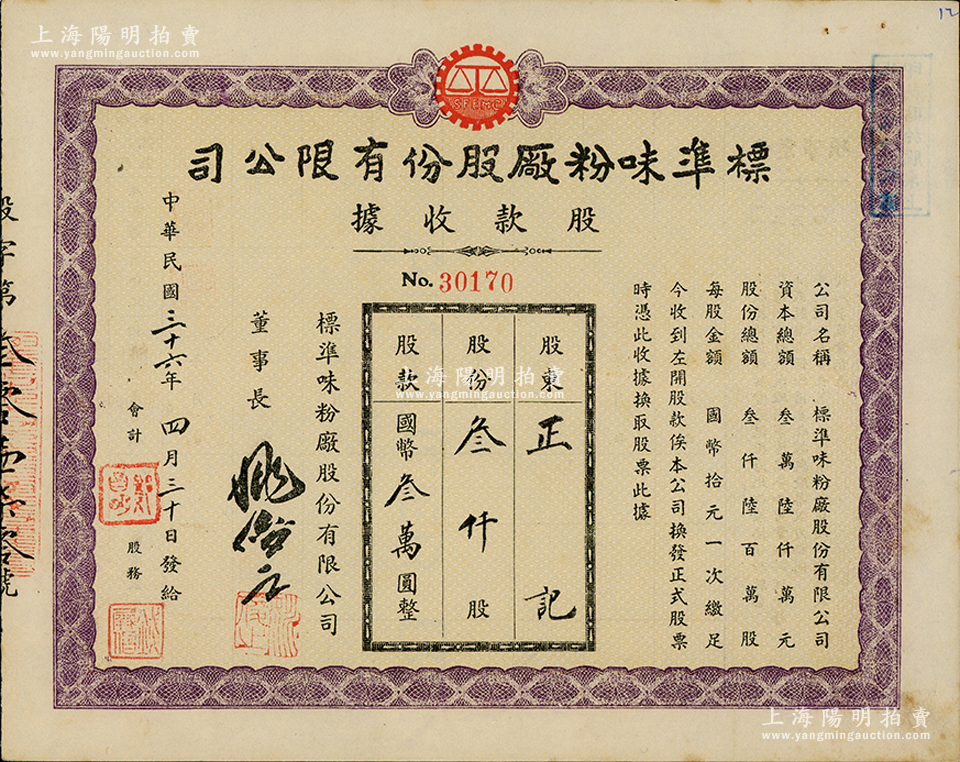 上海陽明拍賣
www.yangmingauction.com
12
SFEMC
標準味粉廠股份有限公司
股款收據
No. 30170
公司名稱 標準味粉廠股份有限公司
資本總額 叁萬陸仟萬元
股份總額 叁仟陸百萬股
每股金額 國幣拾元一次繳足
今收到左開股款俟本公司換發正式股票
時憑此收據換取股票此據
股東 正記
股份 叁仟股
股款 國幣叁萬圓整
標準味粉廠股份有限公司
董事長
中華民國三十六年四月三十日發給
會計
股務
股字第叁零壹柒零號
上海陽明拍賣
www.yangmingauction.com
上海陽明拍賣
www.yangmingauction.com